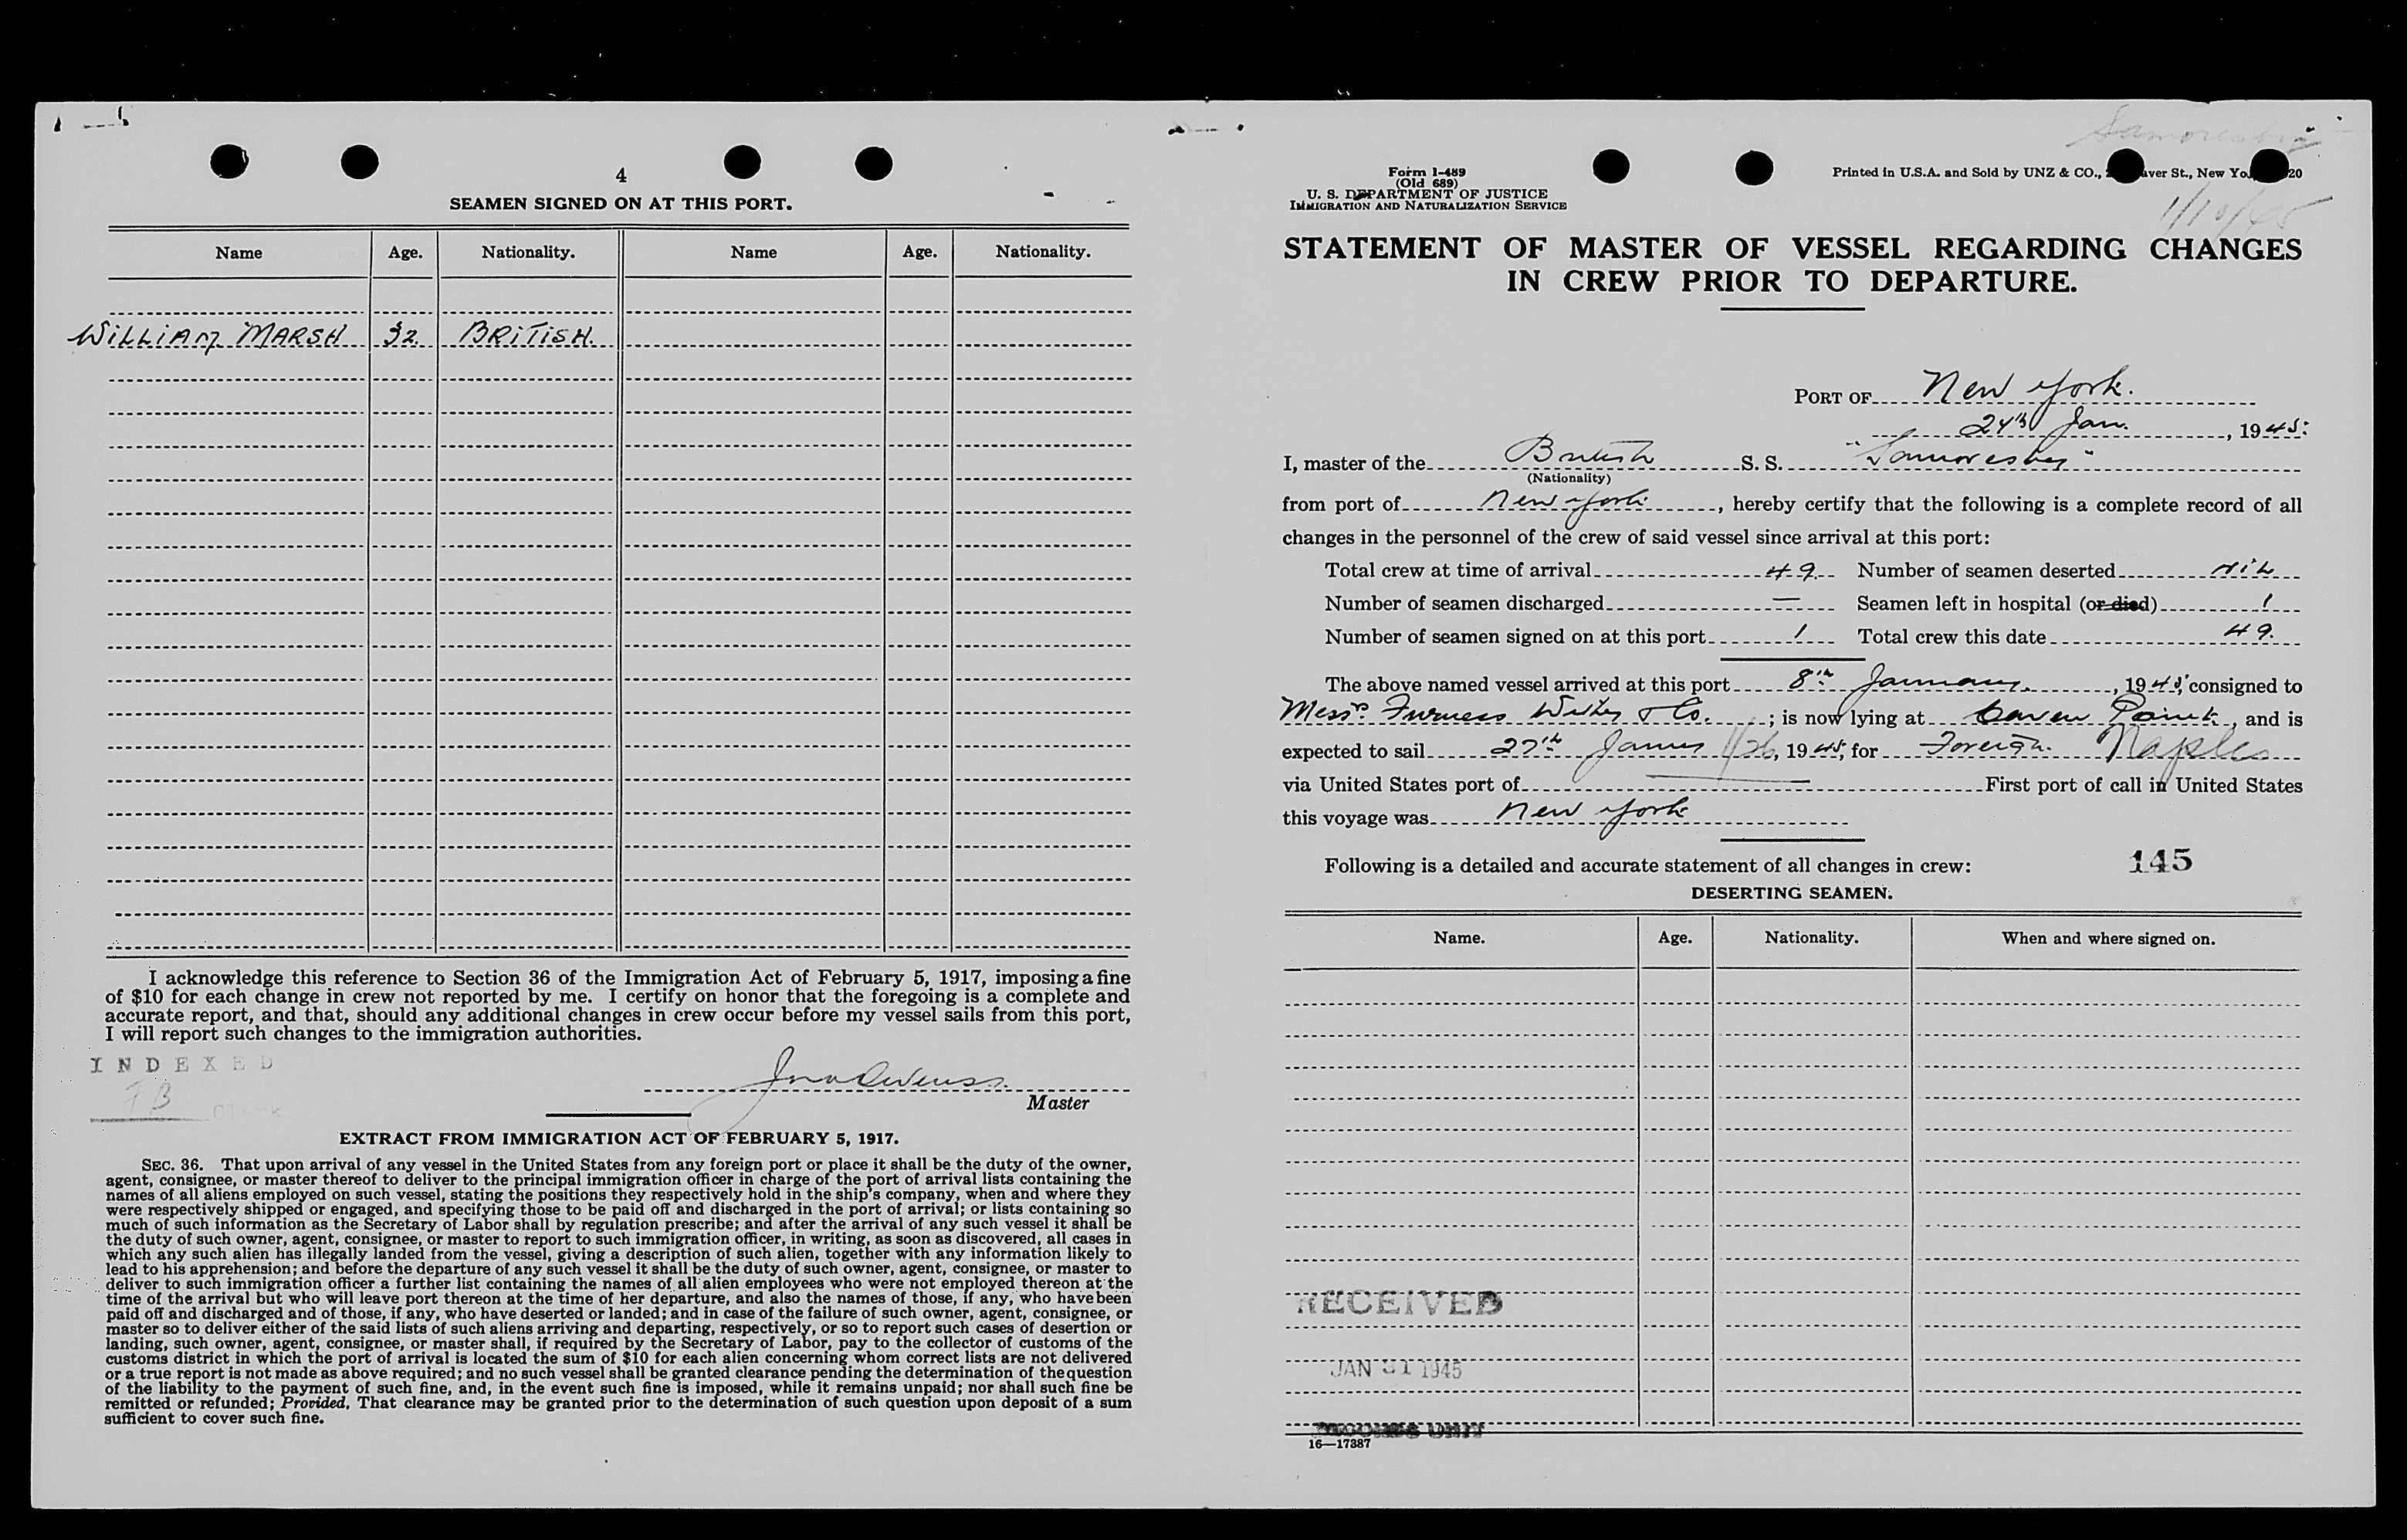 4
SEAMEN SIGNED ON AT THIS PORT.
Name Age. Nationality. Name Age. Nationality.
WILLIAM MARSH 32. BRITISH.
I acknowledge this reference to Section 36 of the Immigration Act of February 5, 1917, imposing a fine
of $10 for each change in crew not reported by me. I certify on honor that the foregoing is a complete and
accurate report, and that, should any additional changes in crew occur before my vessel sails from this port,
I will report such changes to the immigration authorities.
INDEXED
FB Clerk
Master
EXTRACT FROM IMMIGRATION ACT OF FEBRUARY 5, 1917.
SEC. 36. That upon arrival of any vessel in the United States from any foreign port or place it shall be the duty of the owner,
agent, consignee, or master thereof to deliver to the principal immigration officer in charge of the port of arrival lists containing the
names of all aliens employed on such vessel, stating the positions they respectively hold in the ship's company, when and where they
were respectively shipped or engaged, and specifying those to be paid off and discharged in the port of arrival; or lists containing so
much of such information as the Secretary of Labor shall by regulation prescribe; and after the arrival of any such vessel it shall be
the duty of such owner, agent, consignee, or master to report to such immigration officer, in writing, as soon as discovered, all cases in
which any such alien has illegally landed from the vessel, giving a description of such alien, together with any information likely to
lead to his apprehension; and before the departure of any such vessel it shall be the duty of such owner, agent, consignee, or master to
deliver to such immigration officer a further list containing the names of all alien employees who were not employed thereon at the
time of the arrival but who will leave port thereon at the time of her departure, and also the names of those, if any, who have been
paid off and discharged and of those, if any, who have deserted or landed; and in case of the failure of such owner, agent, consignee, or
master so to deliver either of the said lists of such aliens arriving and departing, respectively, or so to report such cases of desertion or
landing, such owner, agent, consignee, or master shall, if required by the Secretary of Labor, pay to the collector of customs of the
customs district in which the port of arrival is located the sum of $10 for each alien concerning whom correct lists are not delivered
or a true report is not made as above required; and no such vessel shall be granted clearance pending the determination of the question
of the liability to the payment of such fine, and, in the event such fine is imposed, while it remains unpaid; nor shall such fine be
remitted or refunded; Provided, That clearance may be granted prior to the determination of such question upon deposit of a sum
sufficient to cover such fine.
Samoresby
Form I-489
(Old 689)
U. S. DEPARTMENT OF JUSTICE
IMMIGRATION AND NATURALIZATION SERVICE
Printed in U.S.A. and Sold by UNZ & CO., aver St., New Yo 20
STATEMENT OF MASTER OF VESSEL REGARDING CHANGES
IN CREW PRIOR TO DEPARTURE.
PORT OF New York.
24th Jan. , 1945:
I, master of the British S. S. "Samoresby"
(Nationality)
from port of New York , hereby certify that the following is a complete record of all
changes in the personnel of the crew of said vessel since arrival at this port:
Total crew at time of arrival 49. Number of seamen deserted NIL
Number of seamen discharged — Seamen left in hospital (or died) 1
Number of seamen signed on at this port 1 Total crew this date 49.
The above named vessel arrived at this port 8th January. , 1945, consigned to
Messrs. Furness Withy & Co. ; is now lying at Caven Point , and is
expected to sail 27th 1/26, 1945, for Foreign. Naples
via United States port of — First port of call in United States
this voyage was New York
Following is a detailed and accurate statement of all changes in crew: 145
DESERTING SEAMEN.
Name. Age. Nationality. When and where signed on.
RECEIVED
JAN 31 1945
RECORDS UNIT
16—17387